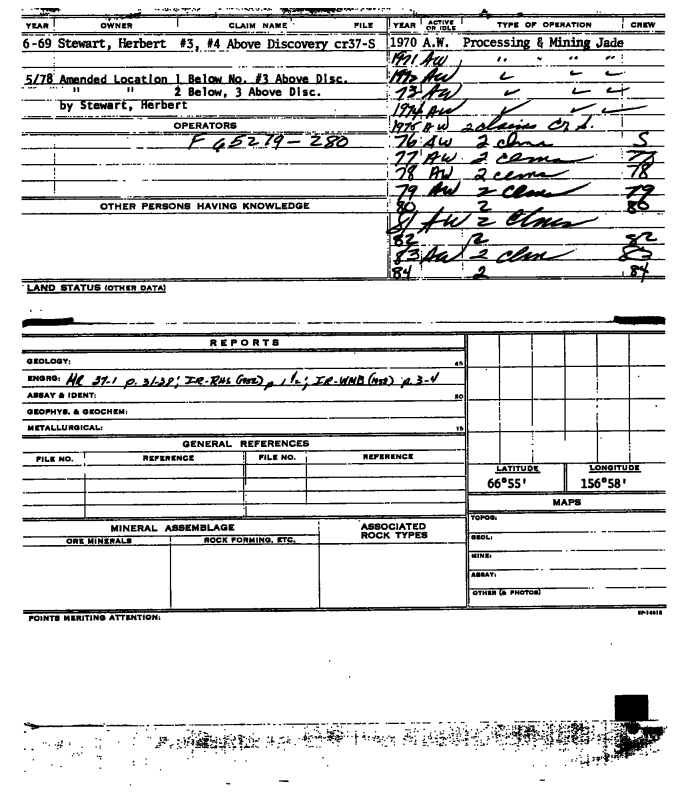 YEAR OWNER CLAIM NAME FILE YEAR ACTIVE OR IDLE TYPE OF OPERATION CREW
6-69 Stewart, Herbert #3, #4 Above Discovery cr37-S 1970 A.W. Processing & Mining Jade
1971 AW " " " "
5/78 Amended Location 1 Below No. #3 Above Disc. 1972 AW ✓ ✓ ✓
" " 2 Below, 3 Above Disc. 73 AW ✓ ✓ ✓
by Stewart, Herbert 1974 AW ✓ ✓ ✓
OPERATORS 1975 AW 2 claims
F 65279-280 76 AW 2 clms S
77 AW 2 clms 77
78 AW 2 clms 78
79 AW 2 clms 79
OTHER PERSONS HAVING KNOWLEDGE 80 2 80
81 AW 2 clms
82 2 82
83 AW 2 clm 83
84 2 84
LAND STATUS (OTHER DATA)
REPORTS
GEOLOGY: 45
ENGRG: MR 27-1 p. 31-38; IR-RHS p 1 1/2; IR-WMB p. 3-4
ASSAY & IDENT: 30
GEOPHYS. & GEOCHEM:
METALLURGICAL: 15
GENERAL REFERENCES
FILE NO. REFERENCE FILE NO. REFERENCE
LATITUDE LONGITUDE
66°55' 156°58'
MAPS
MINERAL ASSEMBLAGE ASSOCIATED ROCK TYPES
ORE MINERALS ROCK FORMING, ETC.
TOPOG:
GEOL:
MINE:
ASSAY:
OTHER (& PHOTOS)
POINTS MERITING ATTENTION: